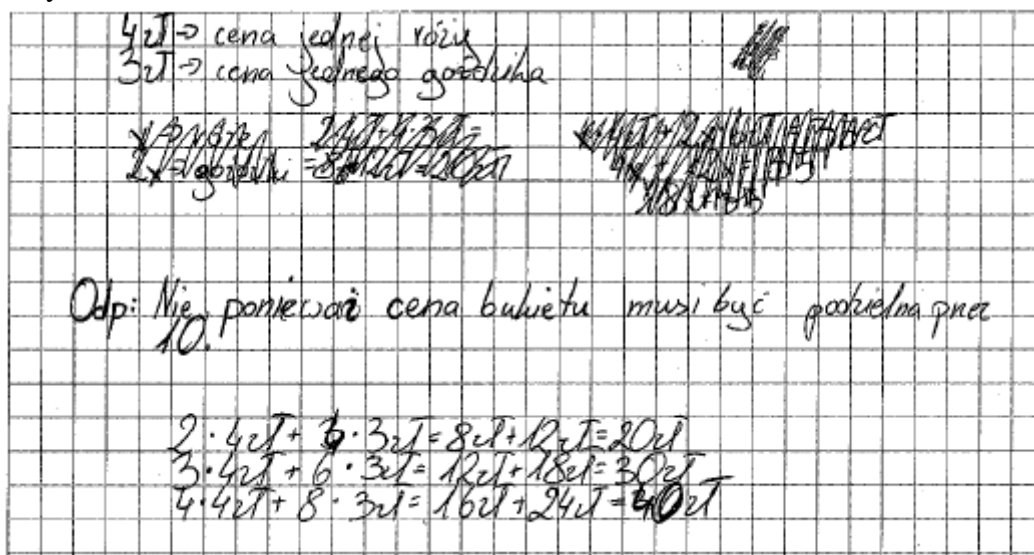 4zł → cena jednej róży
3zł → cena jednego goździka
Odp: Nie, ponieważ cena bukietu musi być podzielna przez
10.
2 · 4zł + 4 · 3zł = 8zł + 12zł = 20zł
3 · 4zł + 6 · 3zł = 12zł + 18zł = 30zł
4 · 4zł + 8 · 3zł = 16zł + 24zł = 40zł